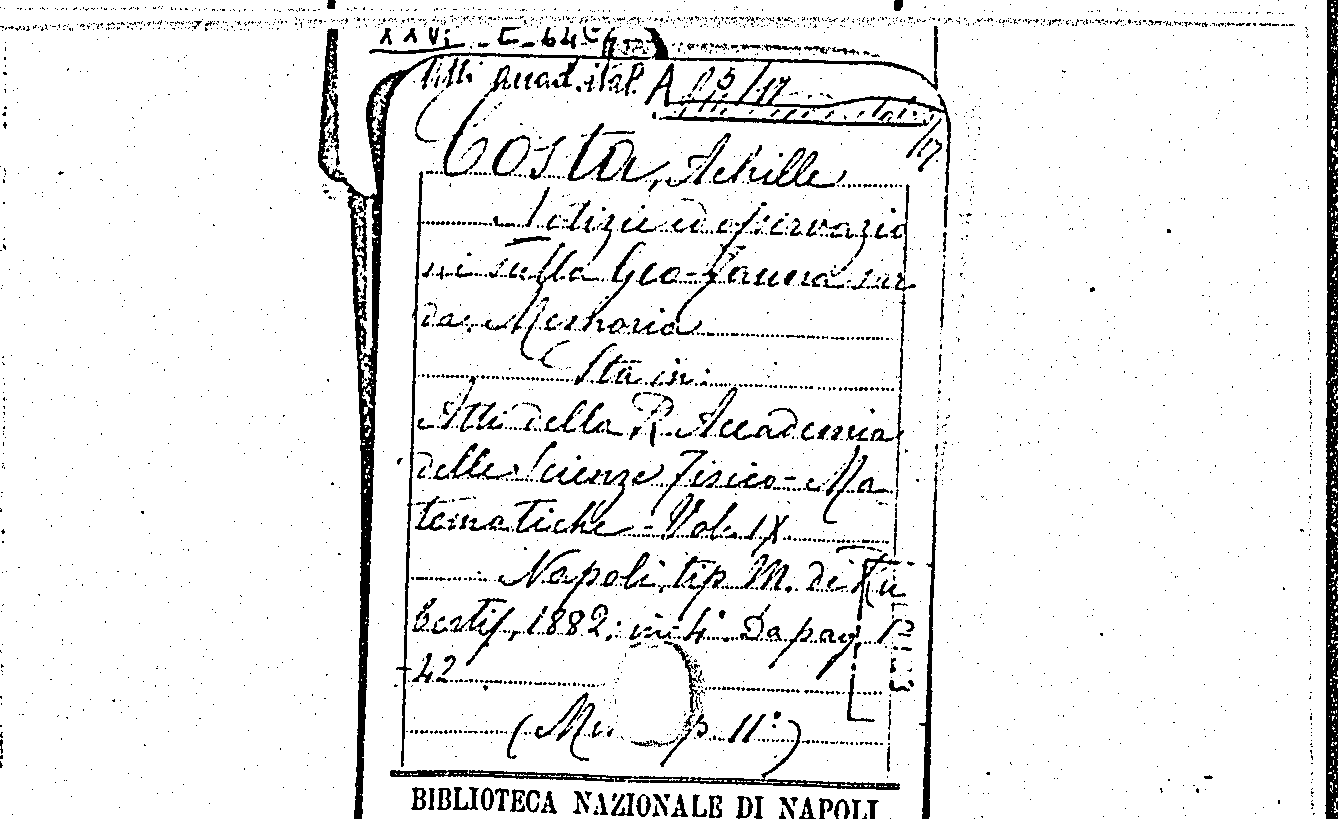 XXVI - C - 64
Atti Accad. ital. A 25/17
/17
Costa, Achille
Notizie ed osservazio
ni sulla Geo-fauna sar
da. Memoria
Sta in:
Atti della R. Accademia
delle Scienze Fisico-Ma
tematiche - Vol. IX
Napoli, tip. M. de Ru
bertis, 1882; in 4° Da pag. 1
-42
(p 11°)
BIBLIOTECA NAZIONALE DI NAPOLI